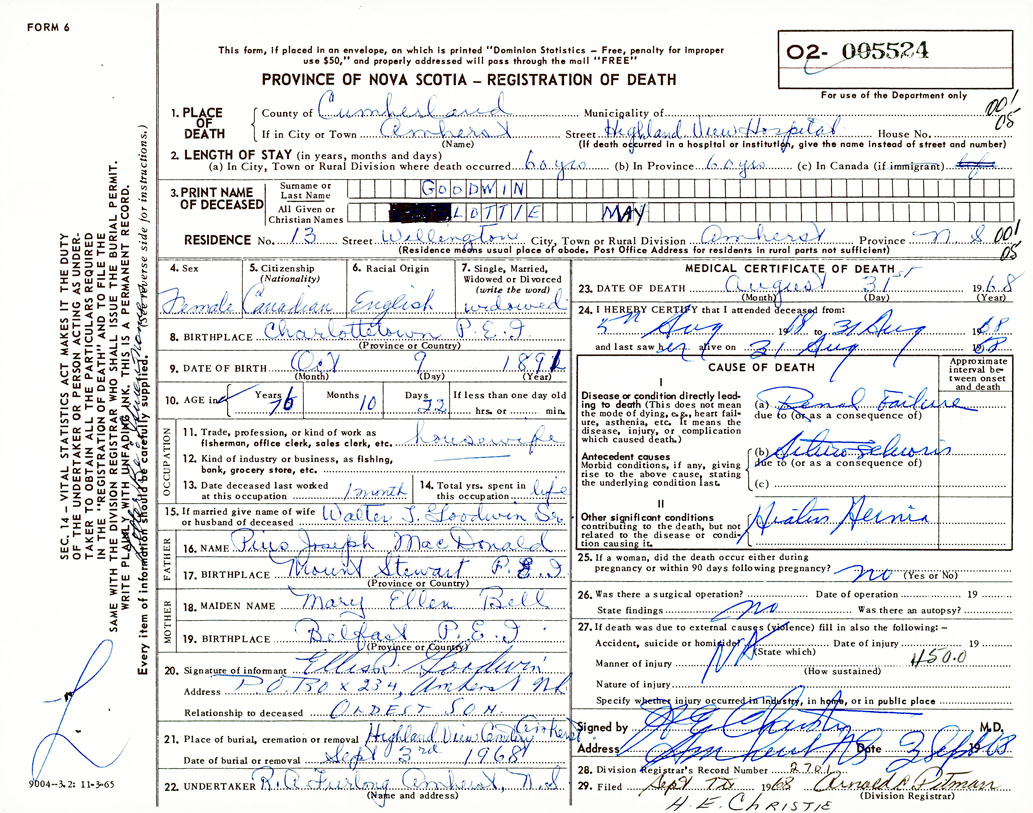 FORM 6
This form, if placed in an envelope, on which is printed "Dominion Statistics – Free, penalty for improper
use $50," and properly addressed will pass through the mail "FREE"
PROVINCE OF NOVA SCOTIA – REGISTRATION OF DEATH
02- 005524
For use of the Department only
001
05
1. PLACE OF DEATH
County of Cumberland Municipality of
If in City or Town Amherst Street Highland View Hospital House No.
(Name) (If death occurred in a hospital or institution, give the name instead of street and number)
2. LENGTH OF STAY (in years, months and days)
(a) In City, Town or Rural Division where death occurred 60 yrs (b) In Province 60 yrs (c) In Canada (if immigrant) life
3. PRINT NAME OF DECEASED
Surname or Last Name GOODWIN
All Given or Christian Names LOTTIE MAY
RESIDENCE No. 13 Street Wellington City, Town or Rural Division Amherst Province N S
001
05
(Residence means usual place of abode. Post Office Address for residents in rural parts not sufficient)
4. Sex
Female
5. Citizenship (Nationality)
Canadian
6. Racial Origin
English
7. Single, Married, Widowed or Divorced (write the word)
widowed
8. BIRTHPLACE Charlottetown P.E.I
(Province or Country)
9. DATE OF BIRTH Oct 9 1891
(Month) (Day) (Year)
10. AGE in Years 76 Months 10 Days 22 If less than one day old
hrs. or min.
OCCUPATION
11. Trade, profession, or kind of work as
fisherman, office clerk, sales clerk, etc. housewife
12. Kind of industry or business, as fishing,
bank, grocery store, etc.
13. Date deceased last worked
at this occupation 1 month
14. Total yrs. spent in
this occupation life
15. If married give name of wife
or husband of deceased Walter T. Goodwin Sr.
FATHER
16. NAME Pius Joseph MacDonald
17. BIRTHPLACE Mount Stewart P.E.I
(Province or Country)
MOTHER
18. MAIDEN NAME Mary Ellen Bell
19. BIRTHPLACE Belfast P.E.I
(Province or Country)
20. Signature of informant Goodwin
Address P.O. Box 234, Amherst NS
Relationship to deceased OLDEST SON.
21. Place of burial, cremation or removal Highland View Cemetery Amherst
Date of burial or removal Sept 3rd 1968
22. UNDERTAKER R.A. Furlong Amherst, N.S
(Name and address)
MEDICAL CERTIFICATE OF DEATH
23. DATE OF DEATH August 31st 1968
(Month) (Day) (Year)
24. I HEREBY CERTIFY that I attended deceased from:
5th Aug 1968 to 31 Aug 1968
and last saw her alive on 31 Aug 1968
CAUSE OF DEATH
Approximate interval between onset and death
I
Disease or condition directly leading to death (This does not mean the mode of dying, e.g., heart failure, asthenia, etc. It means the disease, injury, or complication which caused death.)
(a) Renal Failure
due to (or as a consequence of)
Antecedent causes
Morbid conditions, if any, giving rise to the above cause, stating the underlying condition last.
(b)
due to (or as a consequence of)
(c)
II
Other significant conditions
contributing to the death, but not related to the disease or condition causing it.
Hiatus Hernia
25. If a woman, did the death occur either during
pregnancy or within 90 days following pregnancy? no (Yes or No)
26. Was there a surgical operation? Date of operation 19
State findings no Was there an autopsy?
27. If death was due to external causes (violence) fill in also the following:–
Accident, suicide or homicide? NA Date of injury 19
(State which)
Manner of injury 450.0
(How sustained)
Nature of injury
Specify whether injury occurred in industry, in home, or in public place
Signed by M.D.
Address Amherst NS Date 3 Sept 1968
28. Division Registrar's Record Number 2701
29. Filed Sept 1968 Arnold Pitman
(Division Registrar)
H. E. CHRISTIE
SEC. 14 – VITAL STATISTICS ACT MAKES IT THE DUTY
OF THE UNDERTAKER OR PERSON ACTING AS UNDER-
TAKER TO OBTAIN ALL THE PARTICULARS REQUIRED
IN THE "REGISTRATION OF DEATH" AND TO FILE THE
SAME WITH THE DIVISION REGISTRAR WHO SHALL ISSUE THE BURIAL PERMIT.
WRITE PLAINLY, WITH UNFADING INK. THIS IS A PERMANENT RECORD.
Every item of information should be carefully supplied. (See reverse side for instructions.)
9004–3.2: 11-3-65